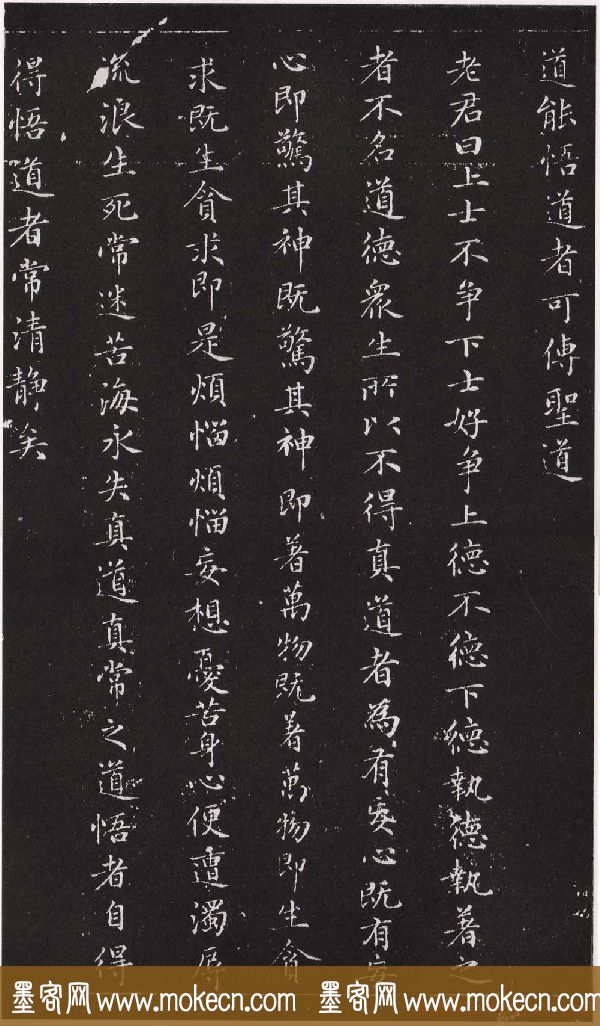 道能悟道者可傳聖道
老君曰上士不争下士好争上德不德下德執德執著之
者不名道德衆生所以不得真道者為有妄心既有妄
心即驚其神既驚其神即著萬物既著萬物即生貪
求既生貪求即是煩惱煩惱妄想憂苦身心便遭濁辱
流浪生死常迷苦海永失真道真常之道悟者自得
得悟道者常清靜矣
墨客网 www.mokecn.com 墨客网 www.mokecn.com